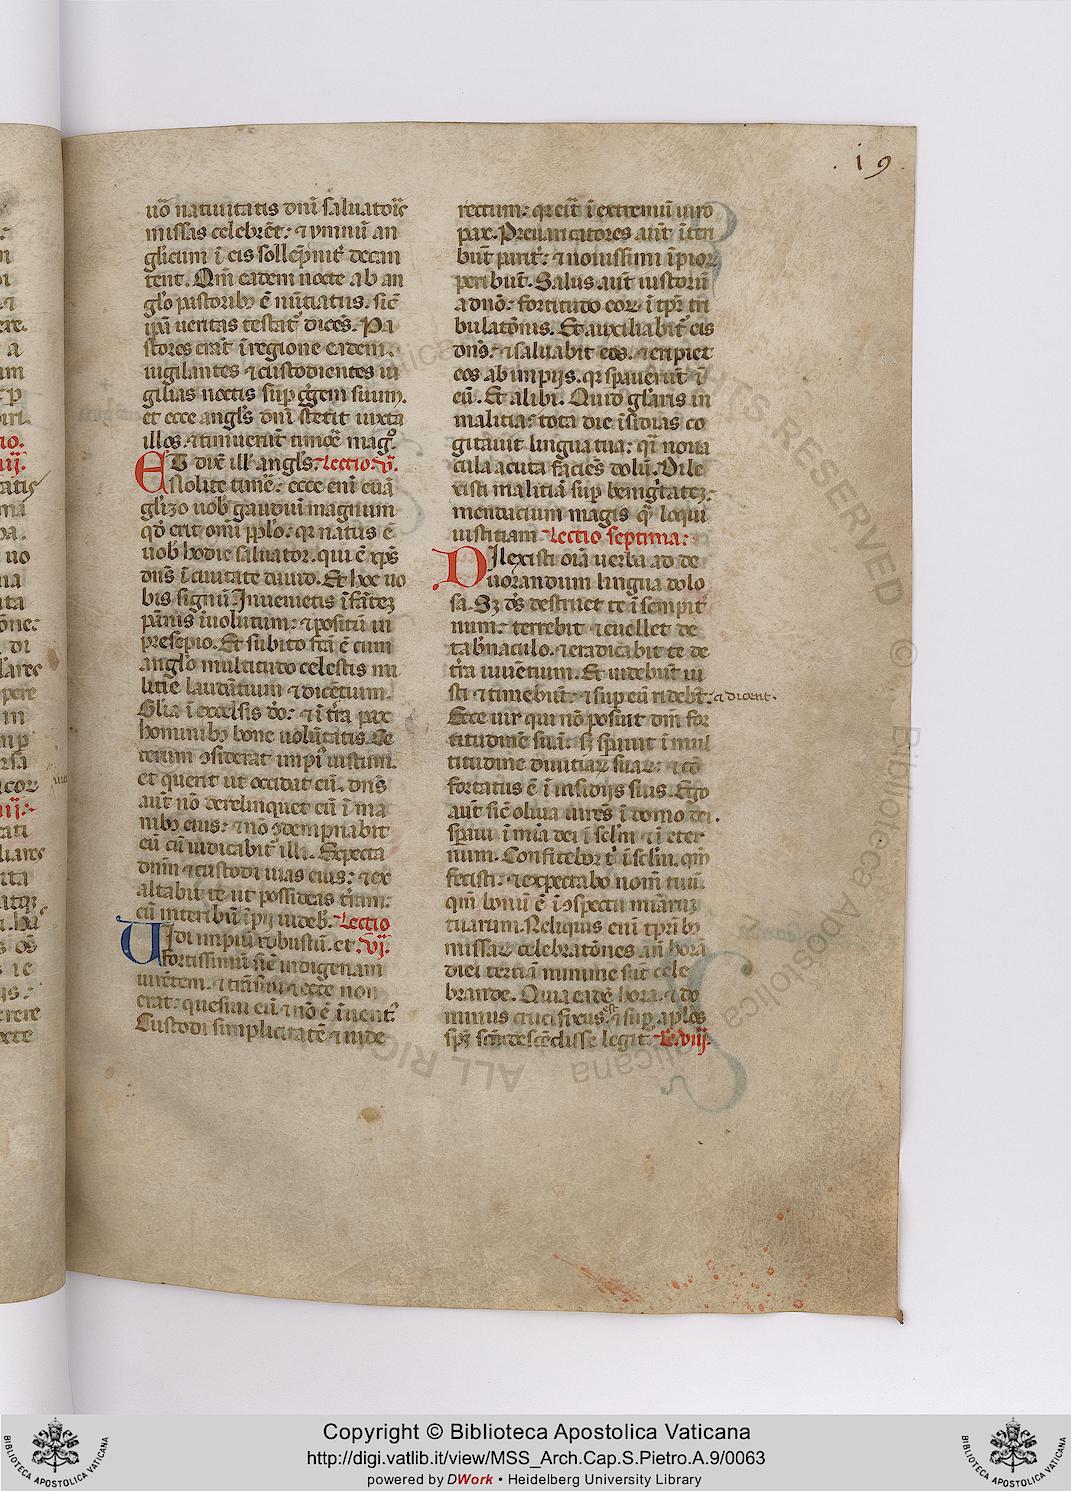 . i 9 .
uō natiuitatis dn̄i saluatoris
missas celebrēt: ⁊ ymnū an
glicum ī eis sollēpnit̉ decan
tent. Qm̄ eadem nocte ab an
gl̓o pastoribꝫ ē nūtiatus. sic̄
ip̄a ueritas testat̉ dicēs. Pa
stores erāt ī regione eadem.
uigilantes ⁊ custodientes ui
gilias noctis sup̄ gr̄gem suum.
et ecce angl̓s dn̄i stetit iuxta
illos. ⁊ timuerūt timore mag̊.
Et dix̄ ill̓ angl̓s. Lectio. v̄.
Nolite timē: ecce eni euā
gl̓izo uob̓ gaudiū magnum
qd̄ erit omī ppl̓o: qr natus ē
uob̓ hodie saluator. qui ē xp̄s
dn̄s ī ciuitate dauid. Et hoc uo
bis signū. Inuenietis īfātez
pānis īuolutum: ⁊ positū in
presepio. Et subito fc̄a ē cum
angl̓o multitudo celestis mi
litie laudātium ⁊ dicētium.
Gl̓ia ī excelsis dō: ⁊ ī tr̄a pax
hominibꝫ bone uolūtatis. Ce
terum ↄsiderat impi̓ iustum.
et querit ut occidat eū. dn̄s
aūt nō derelinquet eū ī ma
nibꝫ eius: ⁊ nō ↄdempnabit
eū cū iudicabit̉ illi. Expecta
dnm̄ ⁊ custodi uias eius: ⁊ ex
altabit te ut possideas tr̄am:
cū interibūt īpii uideb̓. Lectio
Uidi impiū robustū. et vi.
fortissimū sic̄ indigenam
uirētem. ⁊ trāsiui ⁊ ecce non
erat: quesiui eū ⁊ nō ē īuent̉.
Custodi simplicitatē ⁊ uide
rectum: qr erit ī extremū uiro
pax. Preuaricatores aūt īteri
būt parit̉: ⁊ nouissimi īpior̄
peribūt. Salus aūt iustorū
a dnō: fortitudo eor̄ ī tpr̄ tri
bulatōnis. Et auxiliabit̉ eis
dn̄s: ⁊ saluabit eos. ⁊ eripiet
eos ab impijs. qr sperauerūt ī
eū. Et alibi. Quid gl̓aris in
malitia: tota die īsidias co
gitauit lingua tua: qr̄ noua
cula acuta facies dolū. Dile
xisti malitiā sup̄ benig̓tatez:
mendacium magis qͣ̄ loqui
iustitiam. Lectio septima:
Dilexisti oīa uerba ad de
uorandum lingua dolo
sa. Sꝫ ds̄ destruet te ī sempit̉
num: terrebit ⁊ euellet de
tab̓naculo. ⁊ eradicabit te de
tr̄a uiuentium. Et uidebūt iu
sti ⁊ timebūt: ⁊ sup̄ eū ridebt̄. et dicent.
Ecce uir qui nō posuit dm̄ for
titudinē suā: sꝫ sp̄auit ī mul
titudine diuitiaꝝ suaꝝ: ⁊ cō
fortatus ē ī insidijs suis. Ego
aūt sic̄ oliua uirēs ī domo dei.
sp̄aui ī mīa dei ī scl̓m ⁊ ī eter
num. Confitebor t̉ ī scl̓m. qm̄
fecisti: ⁊ expectabo nom̄ tuū.
qm̄ bonū ē ī ↄspectu
tuarum. Reliquis eni tp̄ribꝫ
missaꝝ celebratōnes añ horā
diei tertiā minime sūt cele
brande. Quia eadē hora. ⁊ do
minus crucifixus ē ⁊ sup̄ ap̄los
sp̄s scūs descēdisse legit̉. Lc̄. viij.
Copyright © Biblioteca Apostolica Vaticana
http://digi.vatlib.it/view/MSS_Arch.Cap.S.Pietro.A.9/0063
powered by DWork • Heidelberg University Library
BIBLIOTECA APOSTOLICA VATICANA
BIBLIOTECA APOSTOLICA VATICANA